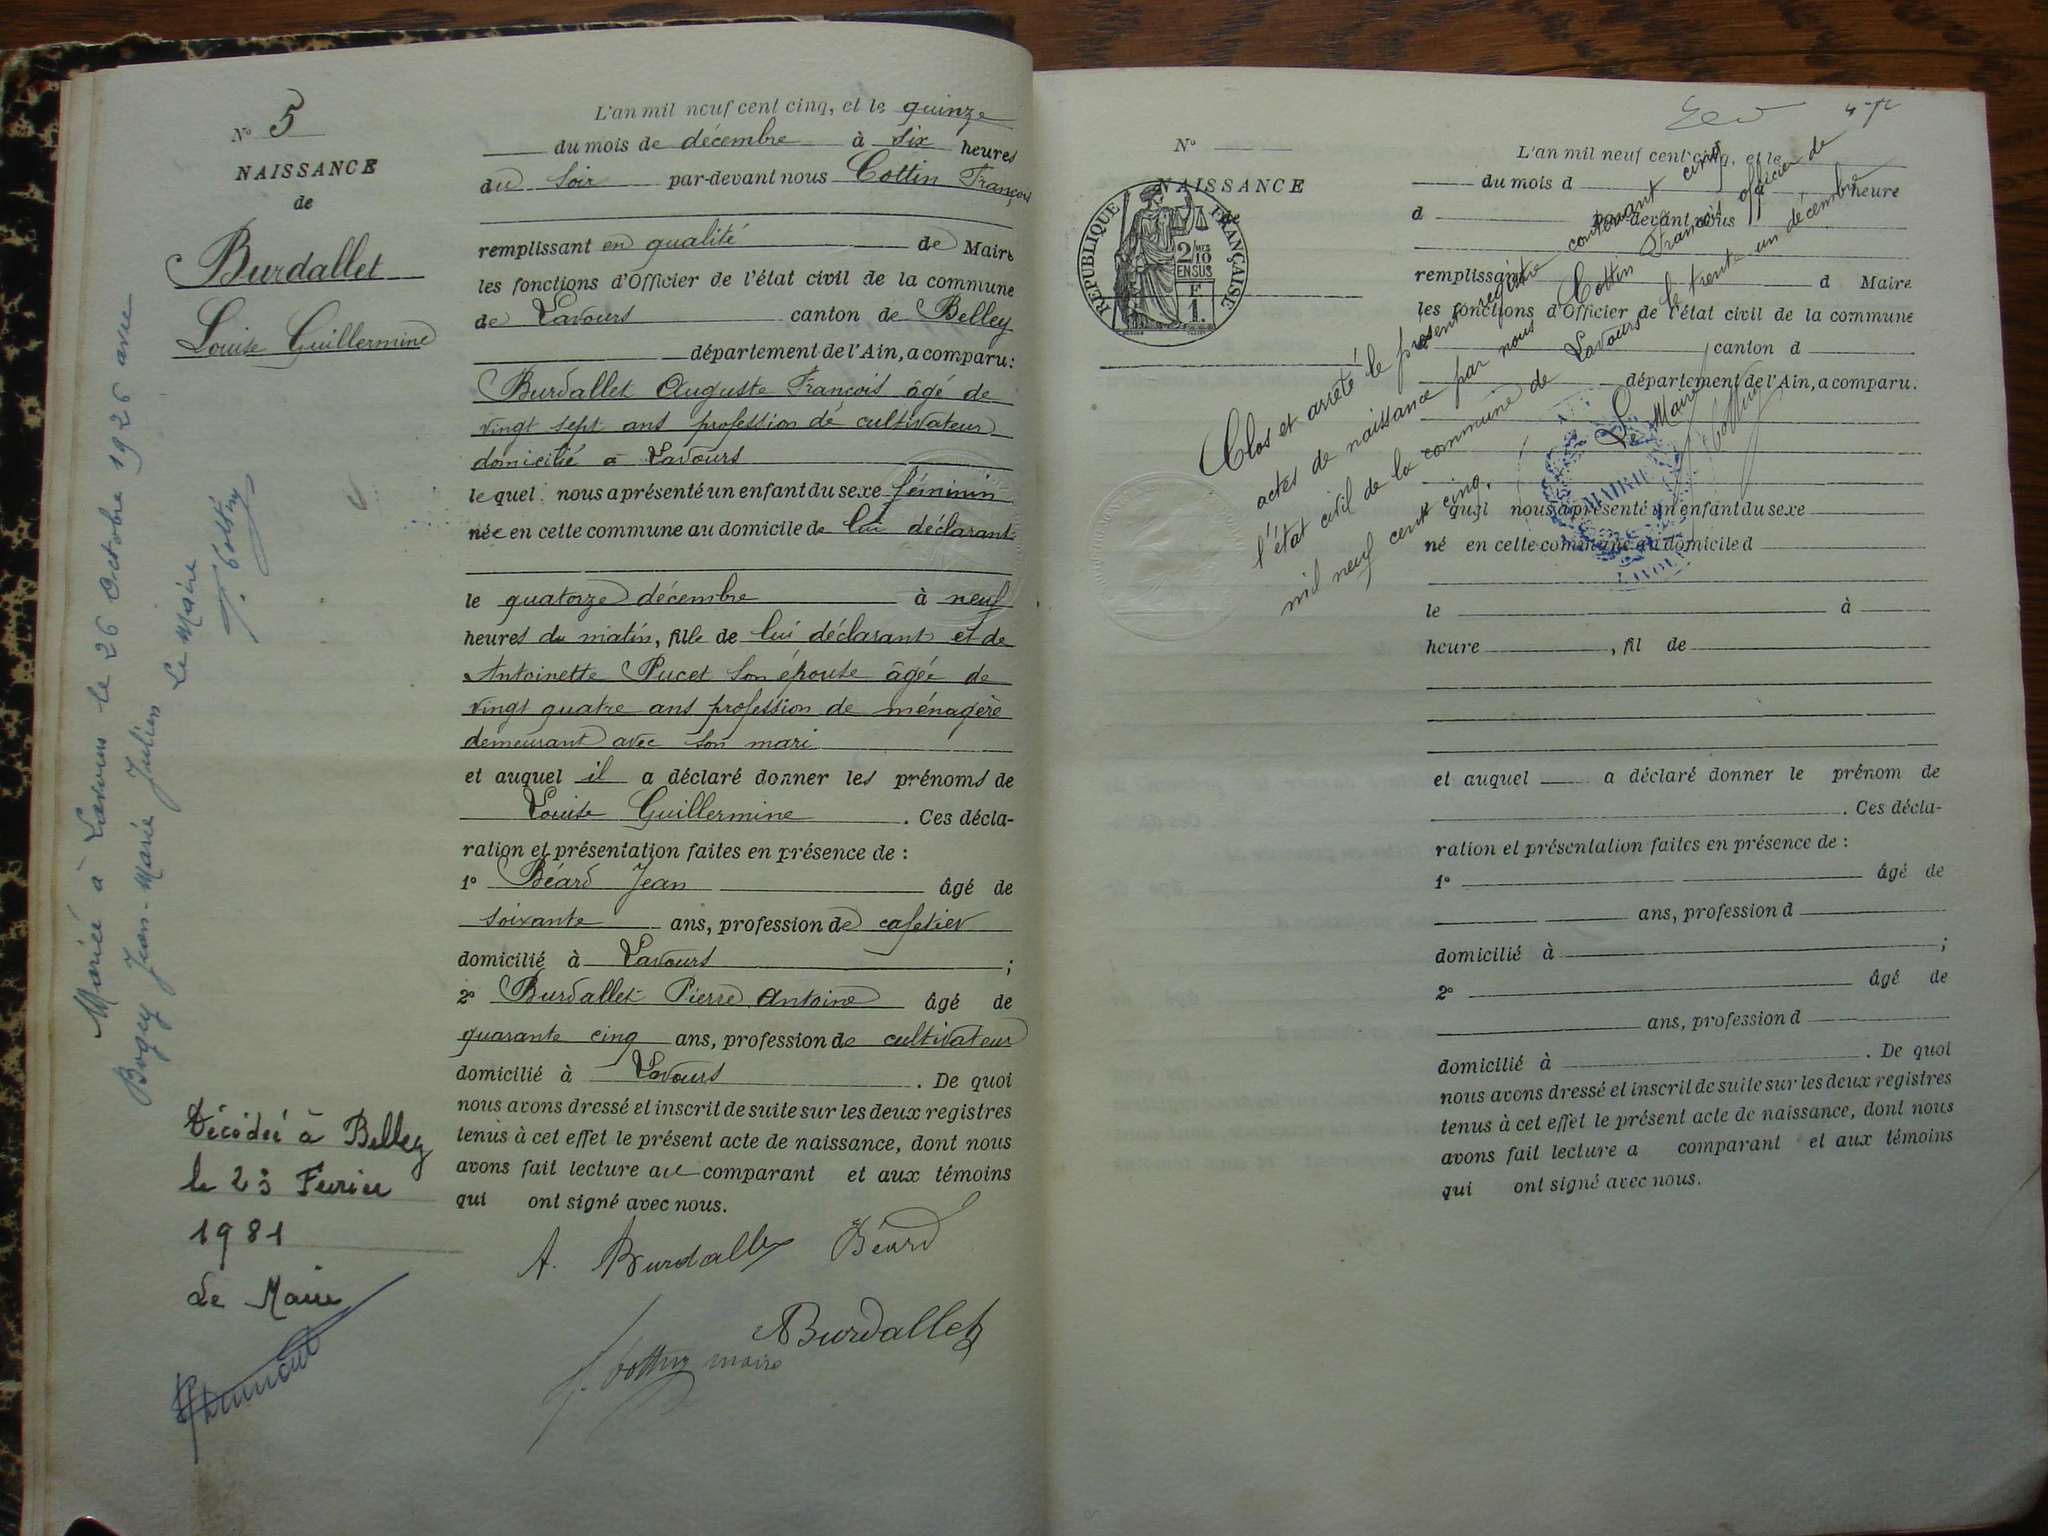 N° 5
NAISSANCE
de
Burdallet
Louise Guillermine
Mariée à Lavours le 26 Octobre 1926 avec
Bogey Jean-Marie Julien
Le Maire
F. Cottin
Décédée à Belley
le 23 Février
1981
Le Maire
L'an mil neuf cent cinq, et le quinze
du mois de décembre à six heures
du soir par-devant nous Cottin François
remplissant en qualité de Maire
les fonctions d'Officier de l'état civil de la commune
de Lavours canton de Belley
département de l'Ain, a comparu:
Burdallet Auguste François âgé de
vingt sept ans profession de cultivateur
domicilié à Lavours
lequel nous a présenté un enfant du sexe féminin
née en cette commune au domicile de lui déclarant
le quatorze décembre à neuf
heures du matin, fille de lui déclarant et de
Antoinette Pucet son épouse âgée de
vingt quatre ans profession de ménagère
demeurant avec son mari
et auquel il a déclaré donner les prénoms de
Louise Guillermine. Ces décla-
ration et présentation faites en présence de :
1° Béard Jean âgé de
soixante ans, profession de cafetier
domicilié à Lavours ;
2° Burdallet Pierre Antoine âgé de
quarante cinq ans, profession de cultivateur
domicilié à Lavours. De quoi
nous avons dressé et inscrit de suite sur les deux registres
tenus à cet effet le présent acte de naissance, dont nous
avons fait lecture au comparant et aux témoins
qui ont signé avec nous.
A. Burdallet Béard
Burdallet
F. Cottin maire
N°
NAISSANCE
de
RÉPUBLIQUE FRANÇAISE
2/10
EN SUS
F
1.
L'an mil neuf cent cinq, et le
du mois d heure
d par-devant nous
remplissant d Maire
les fonctions d'Officier de l'état civil de la commune
d canton d
département de l'Ain, a comparu.
Clos et arrêté le présent registre contenant cinq
actes de naissance par nous Cottin François officier de
l'état civil de la commune de Lavours le trente un décembre
mil neuf cent cinq.
Le Maire
F. Cottin
MAIRIE
quel nous a présenté un enfant du sexe
né en cette commune au domicile d
le à
heure , fil de
et auquel a déclaré donner le prénom de
. Ces décla-
ration et présentation faites en présence de :
1° âgé de
ans, profession d
domicilié à ;
2° âgé de
ans, profession d
domicilié à . De quoi
nous avons dressé et inscrit de suite sur les deux registres
tenus à cet effet le présent acte de naissance, dont nous
avons fait lecture a comparant et aux témoins
qui ont signé avec nous.